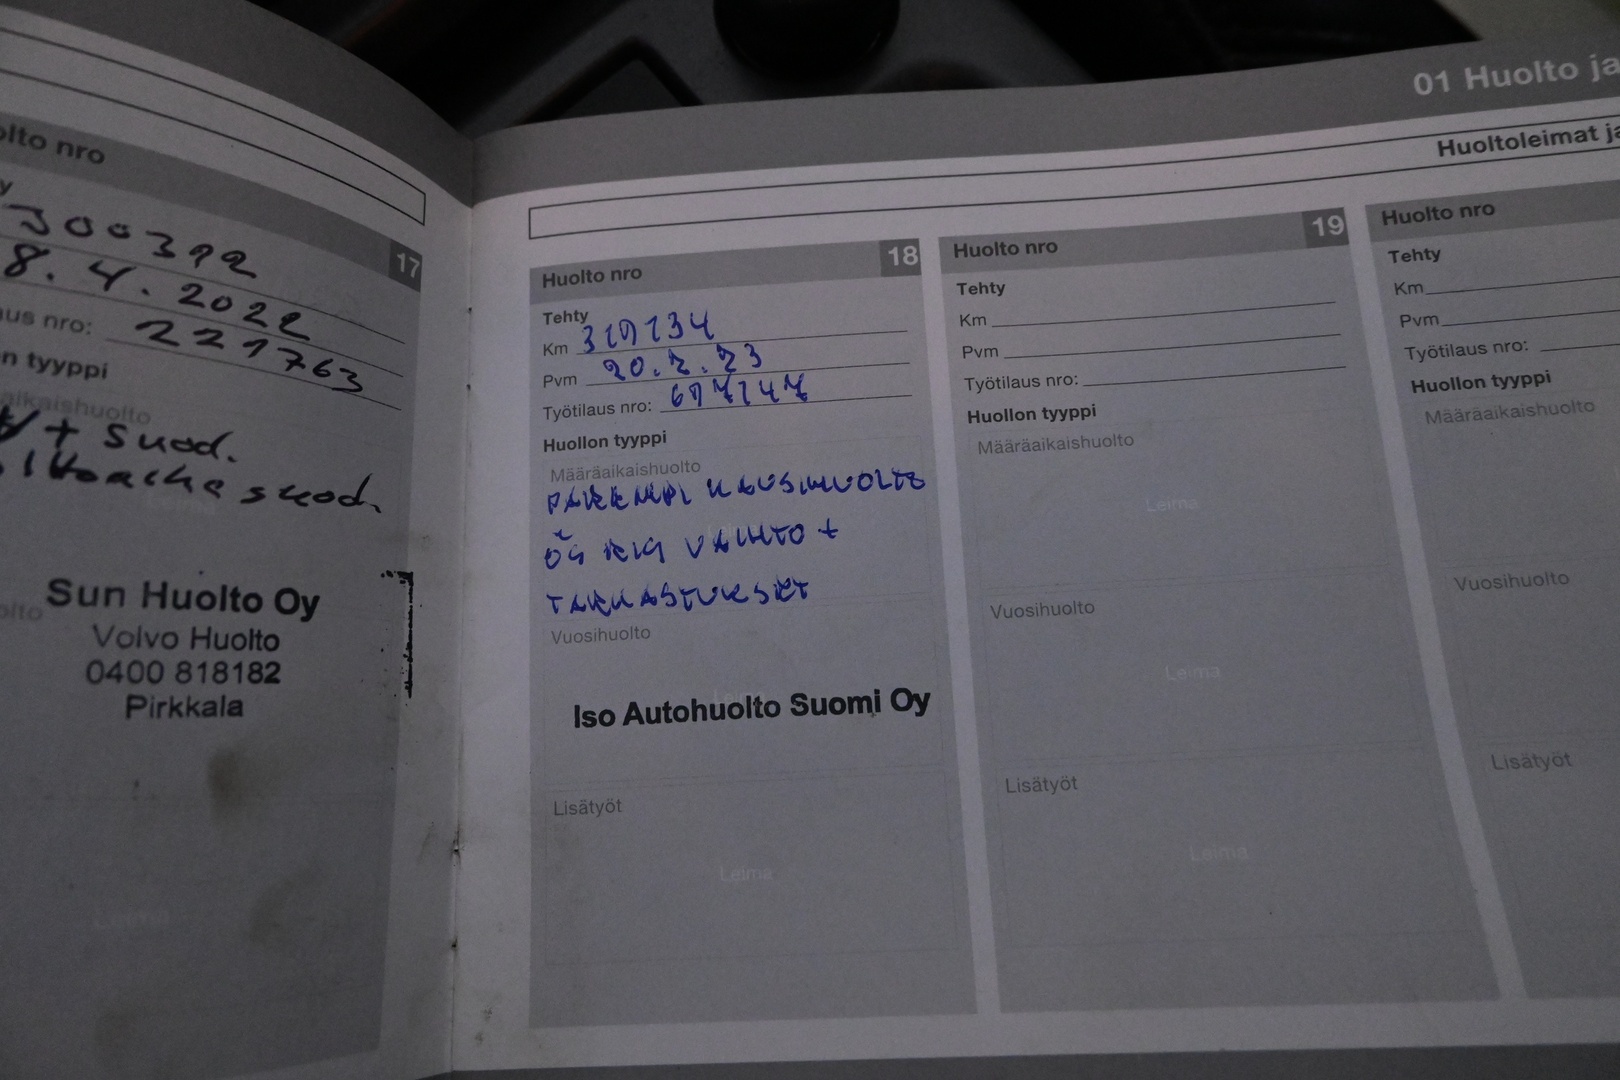 01 Huolto ja
Huoltoleimat ja
olto nro 17
y
300392
8.4.2022
aus nro: 221763
n tyyppi
aikaishuolto
+ suod.
suod.
olto
Sun Huolto Oy
Volvo Huolto
0400 818182
Pirkkala
Huolto nro 18
Tehty
Km 319134
Pvm 20.2.23
Työtilaus nro: 697147
Huollon tyyppi
Määräaikaishuolto
PAREMPI KAUSIHUOLTO
VAIHTO +
TARKASTUKSET
Vuosihuolto
Leima
Iso Autohuolto Suomi Oy
Lisätyöt
Leima
Huolto nro 19
Tehty
Km
Pvm
Työtilaus nro:
Huollon tyyppi
Määräaikaishuolto
Leima
Vuosihuolto
Leima
Lisätyöt
Leima
Huolto nro
Tehty
Km
Pvm
Työtilaus nro:
Huollon tyyppi
Määräaikaishuolto
Vuosihuolto
Lisätyöt